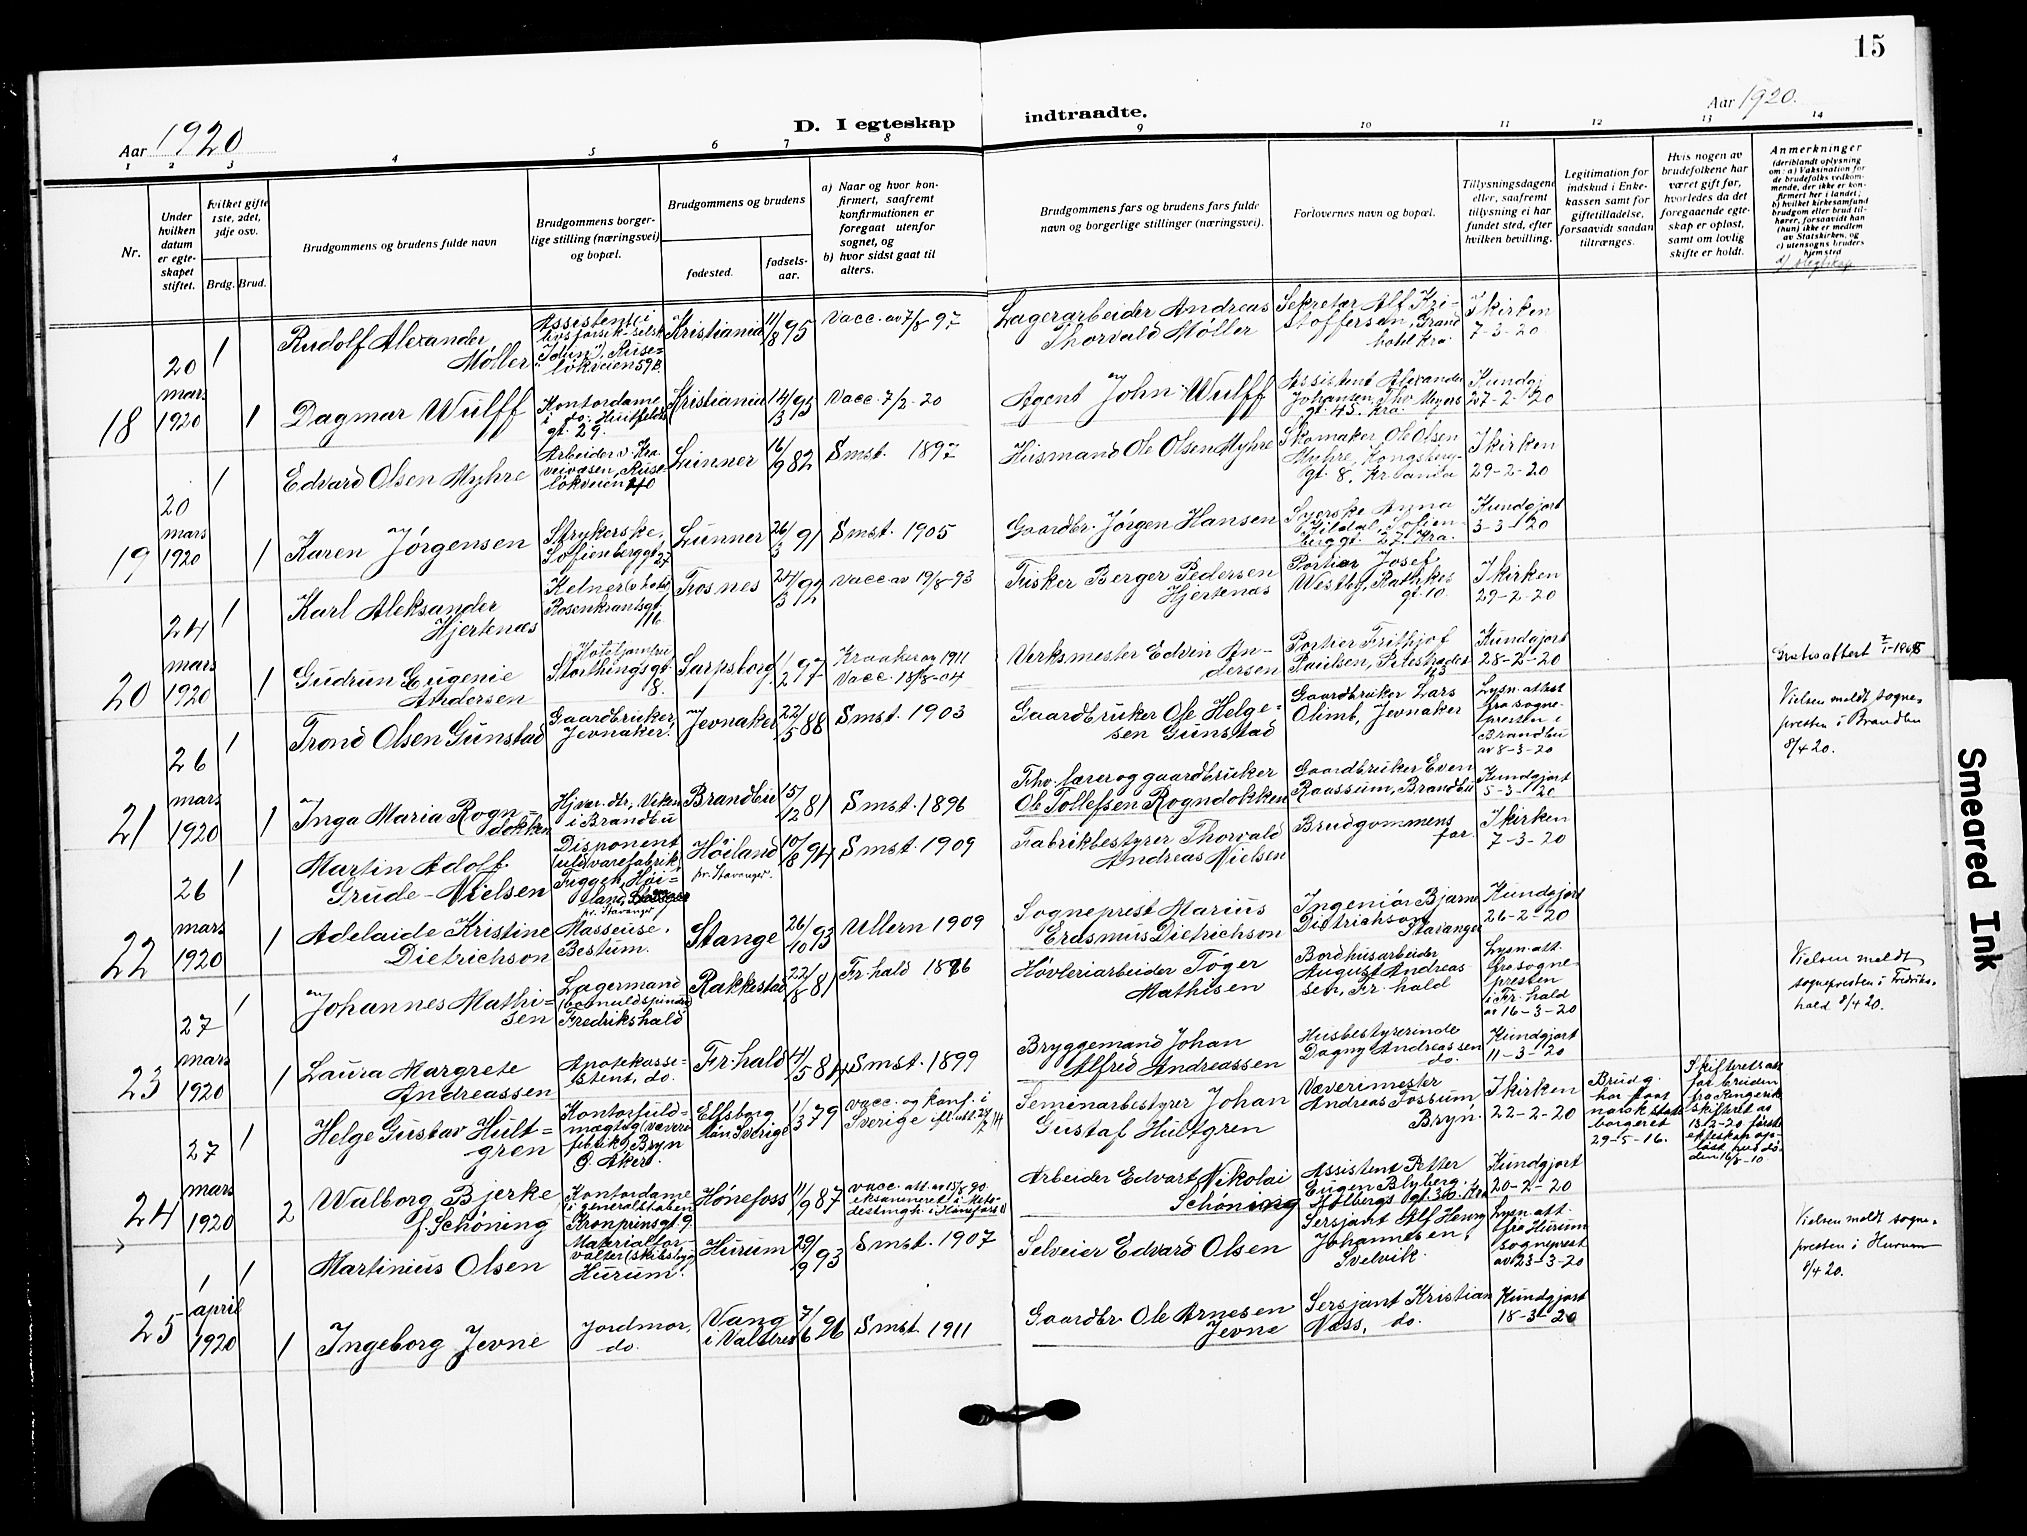 15
Aar 1920
D. I egteskap
indtraadte.
Aar 1920.
1 2 3 4 5 6 7 8 9 10 11 12 13 14
Nr.
Under
hvilken
datum
er egte-
skapet
stiftet.
Hvilket gifte
1ste, 2det,
3dje osv.
Brdg. Brud.
Brudgommens og brudens fulde navn
Brudgommens borger-
lige stilling (næringsvei)
og bopæl.
Brudgommens og brudens
fødested.
fødsels-
aar.
a) Naar og hvor kon-
firmert, saafremt
konfirmationen er
foregaat utenfor
sognet, og
b) hvor sidst gaat til
alters.
Brudgommens fars og brudens fars fulde
navn og borgerlige stillinger (næringsvei).
Forlovernes navn og bopæl.
Tillysningsdagene
eller, saafremt
tillysning ei har
fundet sted, efter
hvilken bevilling.
Legitimation for
indskud i Enke-
kassen samt for
giftetilladelse,
forsaavidt saadan
tiltrænges.
Hvis nogen av
brudefolkene har
været gift før,
hvorledes da det
foregaaende egte-
skap er opløst,
samt om lovlig
skifte er holdt.
Anmerkninger
(deriblandt oplysning
om: a) Vaksination for
de brudefolks vedkom-
mende, der ikke er kon-
firmert her i landet;
b) hvilket kirkesamfund
brudgom eller brud til-
hører, forsaavidt han
(hun) ikke er medlem
av Statskirken, og
c) utensogns bruders
hjemsted
18
20
mars
1920
1
Rudolf Alexander
Møller
Assistent i
livsforsik.-selsk
"Idun", Ruse-
løkveien 59 B.
Kristiania
11/8 95
Vacc. av 7/8-97
Lagerarbeider Andreas
Thorvald Møller
Sekretær Alf Kri-
stoffersen, Grand
hotel Kra.
I kirken
7-3-20
1
Dagmar Wulff
Kontordame
i do. Huitfeldts
gt. 29.
Kristiania
14/3 95
Vacc. 7/2-20
Agent John Wulff
Assistent Alexander
Johansen, Thv. Meyers
gt. 45. Kra.
Kundgj.
27-2-1920
19
20
mars
1920
1
Edvard Olsen Myhre
Arbeider v. Kra.
veivæsen, Ruse-
løkveien 40
Lunner
16/9 82
Smst. 1897
Husmand Ole Olsen Myhre
Skomaker Ole Olsen
Myhre, Kongsberg-
gt. 8, Kr.
I kirken
29-2-20
1
Karen Jørgensen
Strykerske,
Sofienberggt 27
Lunner
26/3 91
Smst. 1905
Gaardbr. Jørgen Hansen
Syerske Anna
Kildal, Sofien-
berggt. 27. Kra.
Kundgjort
3-3-1920
20
24
mars
1920
1
Karl Aleksander
Hjertenæs
Kelner (v. hotel
Rosenkrantsgt.
16
Fosnes
24/3 92
Vacc. av 19/8-93
Fisker Berger Pedersen
Hjertenæs
Portier Josef
Westby, Rathkes
gt. 10
I kirken
29-2-20
1
Gudrun Eugenie
Andersen
Storthingsgt
8.
Sarpsborg
1/2 97
Kraakerøy 1911
Vacc. 18/8-04
Verksmester Edvin An-
dersen
Portier Frithjof
Paulsen, Pilestrædet
Kundgjort
28-2-20
21
26
mars
1920
1
Trond Olsen Gunstad
Gaardbruker,
Jevnaker.
Jevnaker
22/5 88
Smst. 1903
Gaardbruker Ole Helge-
sen Gunstad
Gaardbruker Lars
Olimb, Jevnaker
Lysn. attest
fra sogne-
presten i
Brandbu
av 8-3-20
Vielsen meldt sogne-
presten i Brandbu
8/4 20.
1
Inga Maria Rogn-
dokken
Hjvær. dtr., Viken
i Brandbu
Brandbu
15/12 81
Smst. 1896
Fhv. lærer og gaardbruker
Ole Tollefsen Rogndokken
Gaardbruker Even
Raassum, Brandbu
Kundgjort
5-3-1920
22
26
mars
1920
1
Martin Adolf
Grude-Nielsen
Disponent
(uldvarefabrik
Figgen, Høi-
land,
pr. Stavanger
Høiland
pr. Stavanger.
10/8 94
Smst. 1909
Fabrikbestyrer Thorvald
Andreas Nielsen
Brudgommens
far.
I kirken
7-3-20
1
Adelaide Kristine
Dietrichson
Masseuse,
Bestum.
Stange
26/10 93
Ullern 1909
Sogneprest Marius
Erasmus Dietrichson
Ingeniør Bjarne
Dietrichson
Stavanger
Kundgjort
26-2-20
23
27
mars
1920
1
Johannes Mathi-
sen
Lagermand
(bomuldspinderi)
Fredrikshald
Rakkestad
22/8 81
Fr.hald 1896
Høvleriarbeider Tøger
Mathisen
Bordhusarbeider
August Andreas
sen, Fr.hald
Lysn. att.
fra sogne-
presten
i Fr.hald
av 16-3-20
Vielsen meldt
sognepresten i Fredriks-
hald 8/4 20.
1
Laura Margrete
Andreassen
Apotekasse-
stent, do.
Fr.hald
4/5 84
Smst. 1899
Bryggemand Johan
Alfred Andreassen
Husbestyrerinde
Dagny Andreassen
do.
Kundgjort
11-3-20
24
27
mars
1920
1
Helge Gustav Hult-
gren
Kontorfuld-
mægtig (væveri
fabrik) Bryn
Ø. Aker.
Elfsborg
län Sverige
1/3 79
vacc. og konf. i
Sverige
Seminarbestyrer Johan
Gustaf Hultgren
Væverimester
Andreas Fossum
Bryn.
I kirken
22-2-20
Brudg.
har faat
norsk stats
borgerret
29-5-16.
Skifteretsatt
for bruden
fra Ringerike
skifteret av
13-2-20 første
egteskap op-
løst ved dø-
den 16/8-10
2
Walborg Bjerke
f. Schøning
Kontordame
i generalstaben
Kronprinsgt. 9
Hønefoss
11/9 87
vacc. att. av 15/8 90.
eksamineret i Meto-
distmgh. i Hønefoss
Arbeider Edvart Nikolai
Schøning
Assistent Petter
Eugen Blyberg,
Holbergs gt. 30. Kra
Kundgjort
20-2-20
25
1
april
1920
1
Martinius Olsen
Materialfor-
valter (skibsbygg
Hurum.
Hurum
29/9 93
Smst. 1907
Selveier Edvard Olsen
Sersjant Alf Henry
Johannesen,
Svelvik
Lysn. att.
fra Hurum
sogneprest
av 23-3-20
Vielsen meldt sogne-
presten i Hurum
8/4 20.
1
Ingeborg Jevne
Jordmor,
do.
Vang
i Valdres
7/6 96
Smst. 1911
Gaardbr. Ole Arnesen
Jevne
Sersjant Kristian
Næss, do.
Kundgjort
18-3-20
Smeared Ink